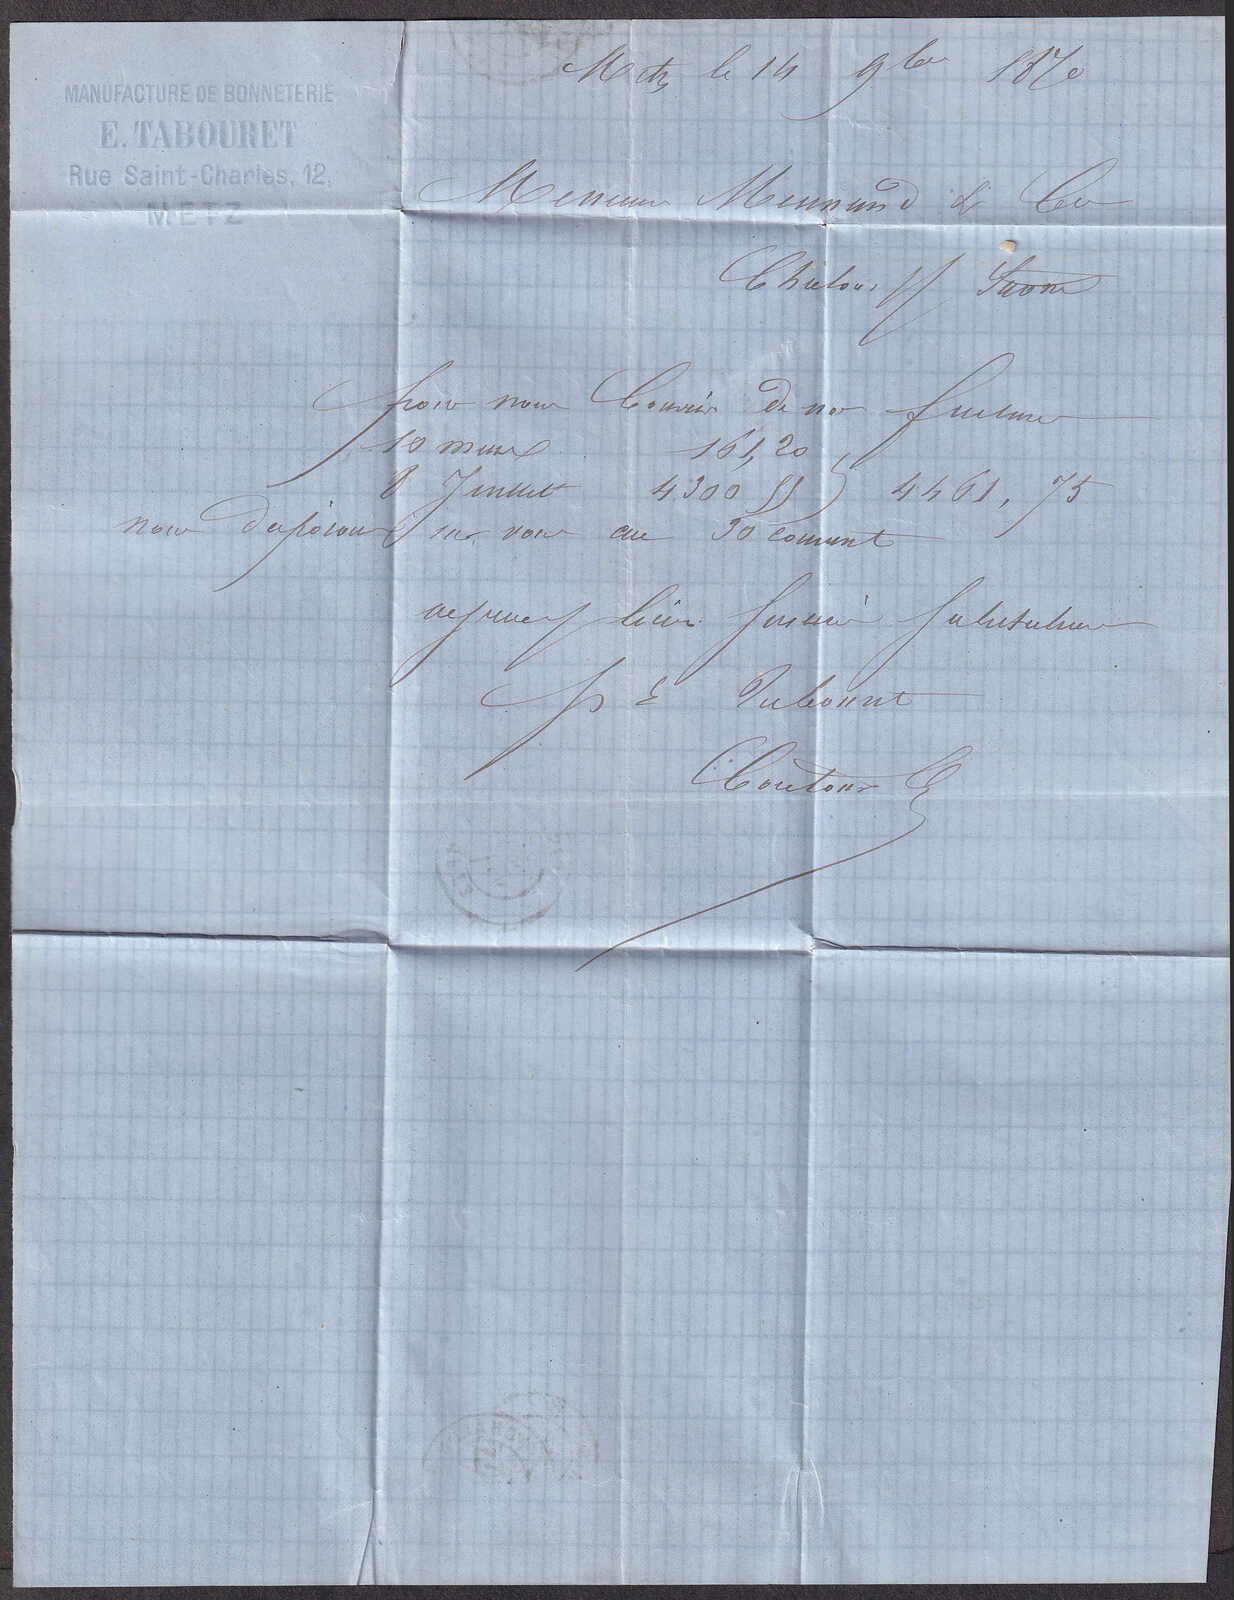 MANUFACTURE DE BONNETERIE
E. TABOURET
Rue Saint-Charles, 12,
METZ
Metz le 14 9bre 1870
Messieurs Meunand & Cie
Chalons s/ Saone
pour nous Couvrir de nos factures
10 mars 161,20
8 Juillet 4300 55 } 4461,75
nous disposons sur vous au 30 courant
agreez bien sincères salutations
p E Tabouret